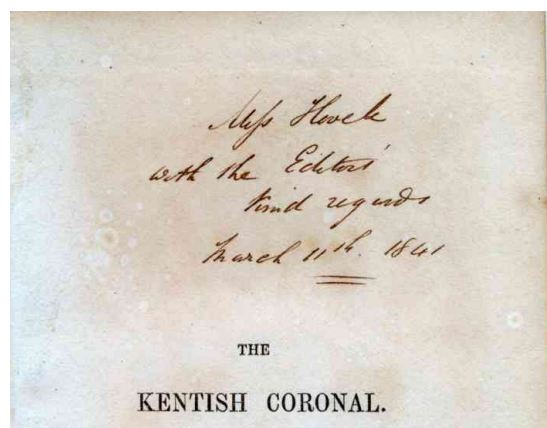 Miss
with the Editors'
kind regards
March 11th. 1841
THE
KENTISH CORONAL.